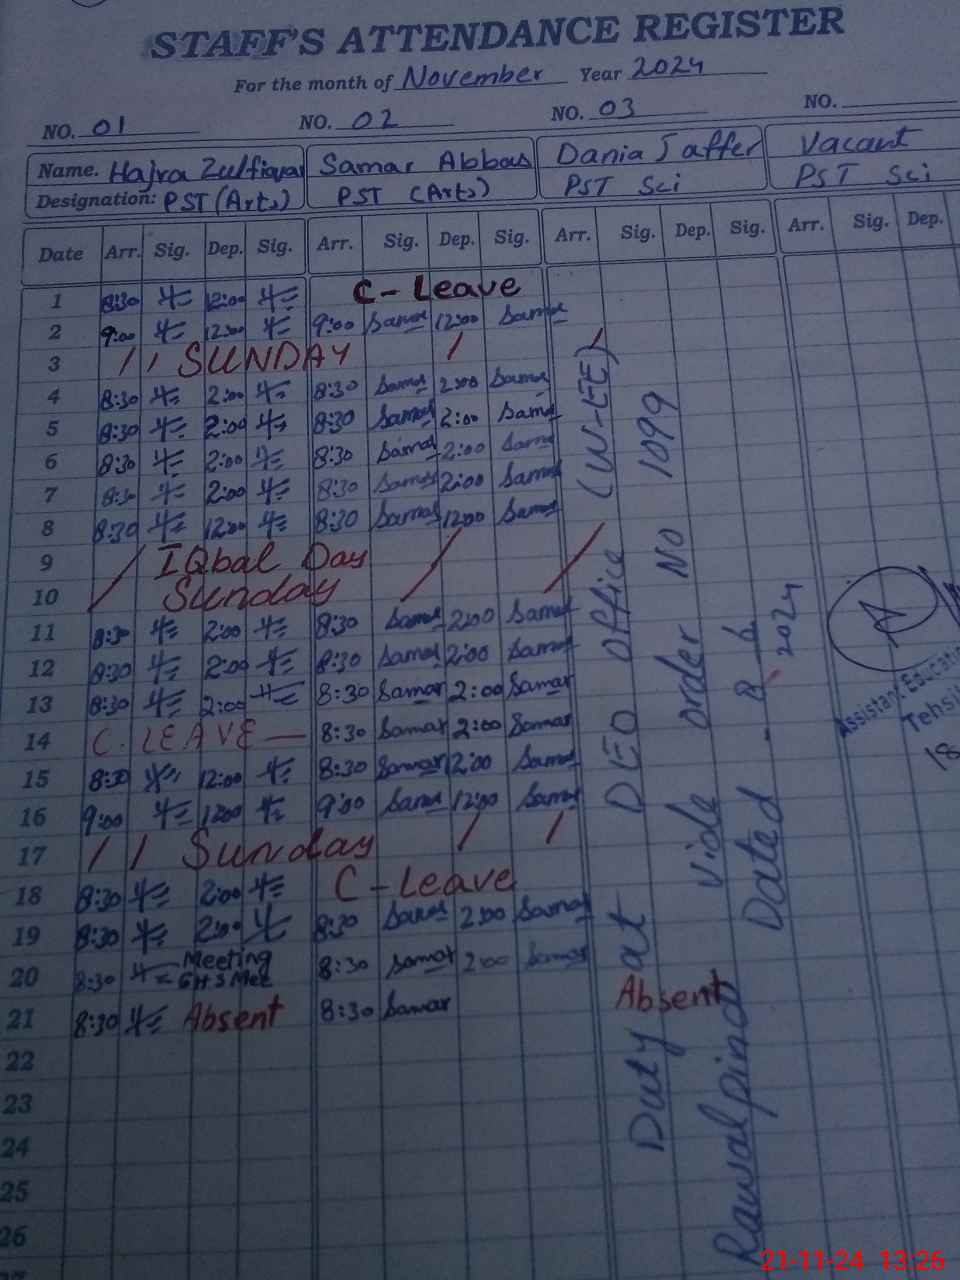 STAFF'S ATTENDANCE REGISTER
For the month of November Year 2024
NO. 01 NO. 02 NO. 03 NO.
Name. Hajra Zulfiqar Samar Abbas Dania Jaffer Vacant
Designation: PST (Arts) PST (Arts) PST Sci PST Sci
Date Arr. Sig. Dep. Sig. Arr. Sig. Dep. Sig. Arr. Sig. Dep. Sig. Arr. Sig. Dep.
1 8:30 12:00 C-Leave
2 9:00 12:00 9:00 Samar 12:00 Samar
3 SUNDAY
4 8:30 2:00 8:30 Samar 2:00 Samar
5 8:30 2:00 8:30 Samar 2:00 Samar
6 8:30 2:00 8:30 Samar 2:00 Samar
7 8:30 2:00 8:30 Samar 2:00 Samar
8 8:30 12:00 8:30 Samar 12:00 Samar
9 IQbal Day
10 Sunday
11 8:30 2:00 8:30 Samar 2:00 Samar
12 8:30 2:00 8:30 Samar 2:00 Samar
13 8:30 2:00 8:30 Samar 2:00 Samar
14 C. LEAVE 8:30 Samar 2:00 Samar
15 8:30 12:00 8:30 Samar 12:00 Samar
16 9:00 12:00 9:00 Samar 12:00 Samar
17 Sunday
18 8:30 2:00 C-Leave
19 8:30 2:00 8:30 Samar 2:00 Samar
20 8:30 Meeting 8:30 Samar 2:00 Samar
21 8:30 Absent 8:30 Samar Absent
22
23
24
25
26
Duty at DEO Office (W-EE)
Rawalpindi vide order No 1099
Dated 8-6-2024
Assistant Educati
Tehsi
18
21-11-24 13:26